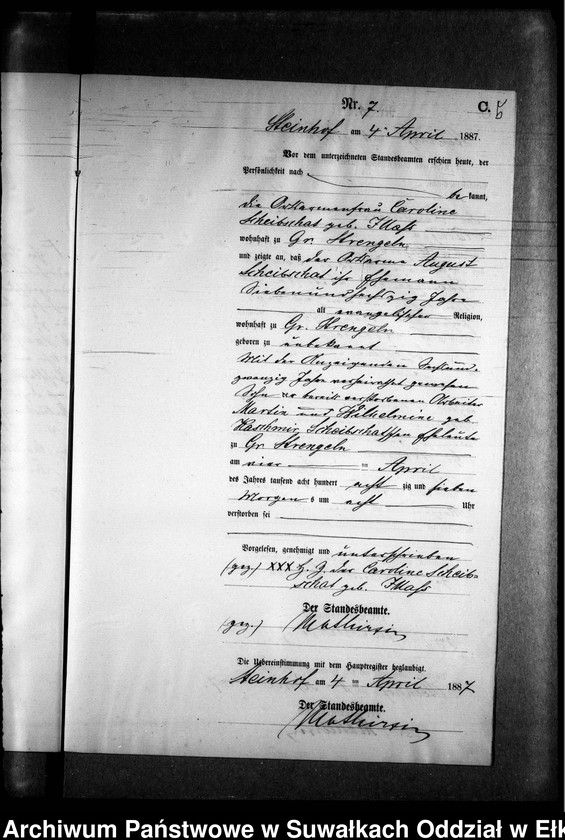 Nr. 7. C.
Steinhof am 4. April 1887.
Vor dem unterzeichneten Standesbeamten erschien heute, der
Persönlichkeit nach
be kannt,
die Ortsarmenfrau Caroline
Scheibschat geb.
wohnhaft zu Gr. Strengeln
und zeigte an, daß der Ortsarme August
Scheibschat ihr Ehemann
Siebenundsechzig Jahre
alt evangelischer Religion,
wohnhaft zu Gr. Strengeln
geboren zu unbekannt
Mit der Anzeigenden
zwanzig Jahre verheirathet gewesen
Sohn der bereits verstorbenen Arbeiter
Martin und Wilhelmine geb.
Kaschmir, Scheibschatschen Eheleute
zu Gr. Strengeln
am vier ten April
des Jahres tausend acht hundert acht zig und sieben
Morgen s um acht Uhr
verstorben sei
Vorgelesen, genehmigt und unterschrieben
(gez.) XXX H. Z. der Caroline Scheib-
schat geb.
Der Standesbeamte.
(gez.)
Die Uebereinstimmung mit dem Hauptregister beglaubigt.
Steinhof am 4 ten April 1887
Der Standesbeamte.
Archiwum Państwowe w Suwałkach Oddział w Ełk